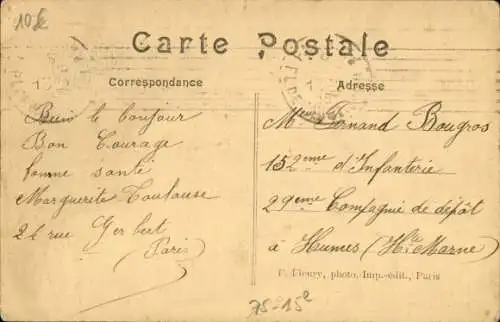 10k
Carte Postale
Correspondance
Adresse
Bien le bonjour
Bon Courage
bonne santé
Marguerite Toulouse
22 rue Gerbert
(Paris)
Mr Fernand Bougros
152eme d'Infanterie
29eme Compagnie de dépôt
à Humes (Hte Marne)
F. Fleury, photo. Imp.-édit., Paris
75-15e